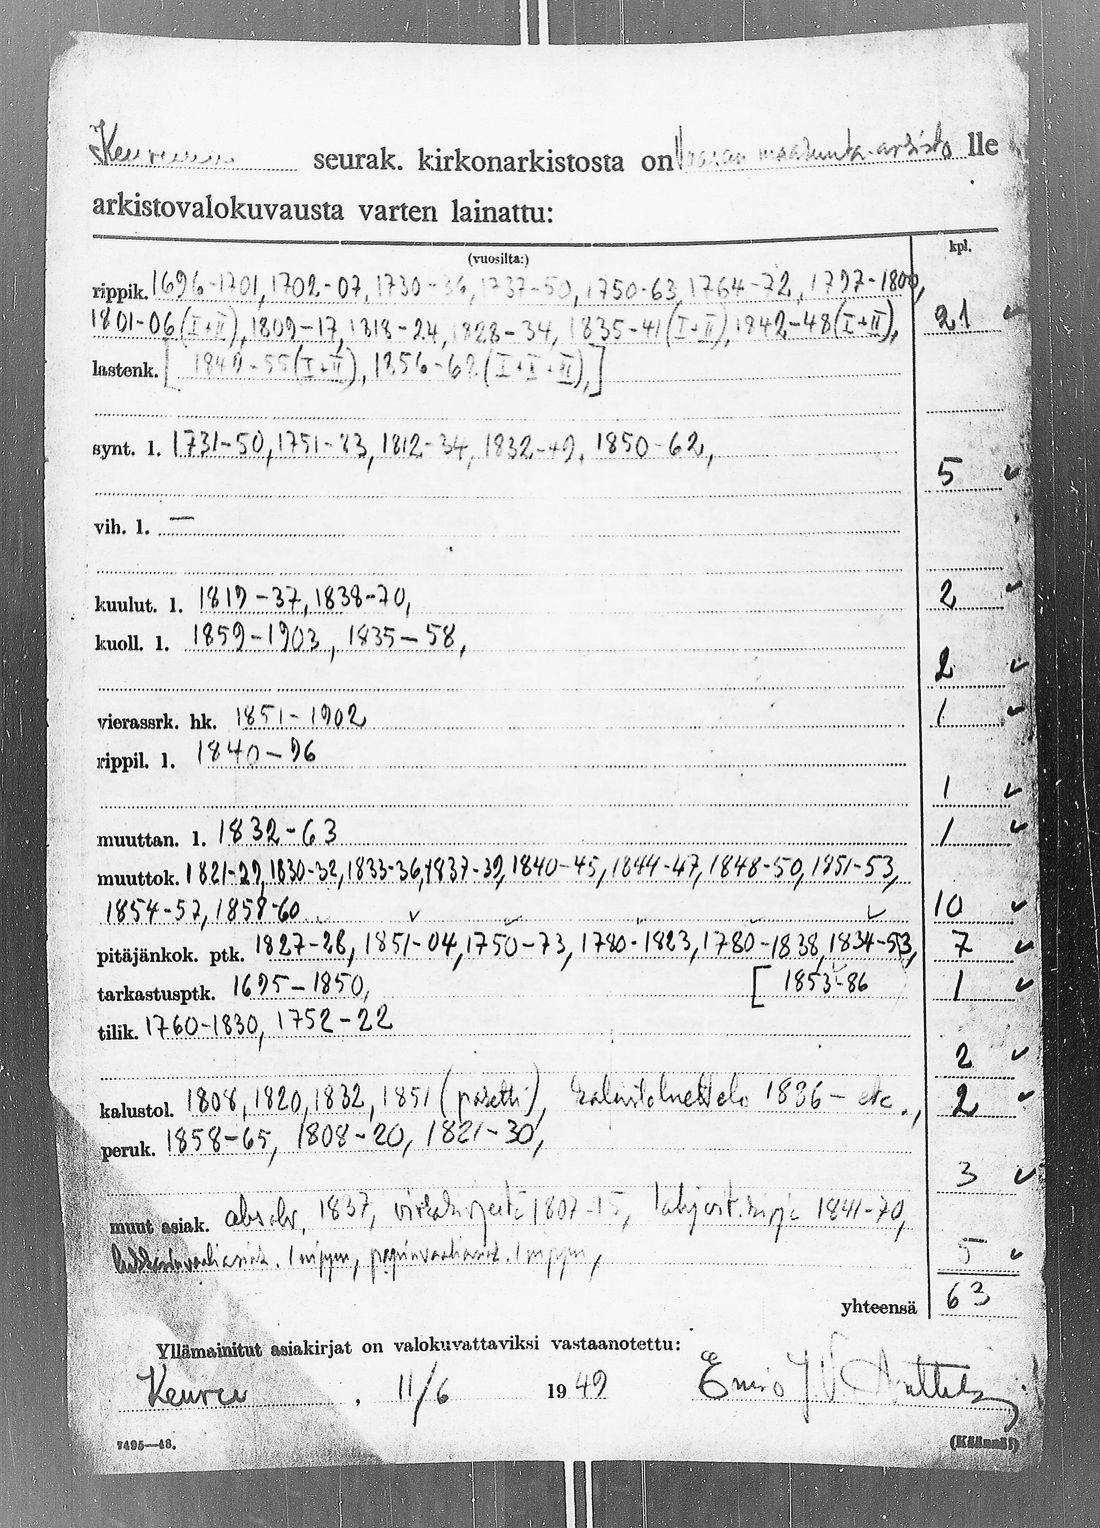 Keuruun seurak. kirkonarkistosta on Vaasan maakunta-arkisto lle
arkistovalokuvausta varten lainattu:
(vuosilta:) kpl.
rippik. 1696-1701, 1702-07, 1730-36, 1737-50, 1750-63, 1764-72, 1797-1800,
1801-06 (I+II), 1809-17, 1818-24, 1828-34, 1835-41 (I+II), 1842-48 (I+II), 21 ✓
lastenk. [1849-55 (I+II), 1856-62 (I+I+II),]
synt. l. 1731-50, 1751-83, 1812-34, 1832-49, 1850-62,
5 ✓
vih. l. —
kuulut. l. 1819-37, 1838-70, 2 ✓
kuoll. l. 1859-1903, 1835-58,
2 ✓
vierassrk. hk. 1851-1902 1 ✓
rippil. l. 1840-96
1 ✓
muuttan. l. 1832-63 1 ✓
muuttok. 1821-29, 1830-32, 1833-36, 1837-39, 1840-45, 1844-47, 1848-50, 1851-53,
1854-57, 1858-60 10 ✓
pitäjänkok. ptk. 1827-28, 1851-04, 1750-73, 1780-1823, 1780-1838, 1834-53, 7 ✓
tarkastusptk. 1695-1850, [1853-86 1 ✓
tilik. 1760-1830, 1752-22
2 ✓
kalustol. 1808, 1820, 1832, 1851 (pasetti), kalustoluettelo 1836- etc., 2 ✓
peruk. 1858-65, 1808-20, 1821-30,
3 ✓
muut asiak. 1837, virkakirjeitä 1807-15, lahjoit. kirja 1841-70,
1 nippu, 1 nippu, 5 ✓
yhteensä 63
Yllämainitut asiakirjat on valokuvattaviksi vastaanotettu:
Keuruu. 11/6 1949 Eniö
7495—48. (Käännä!)